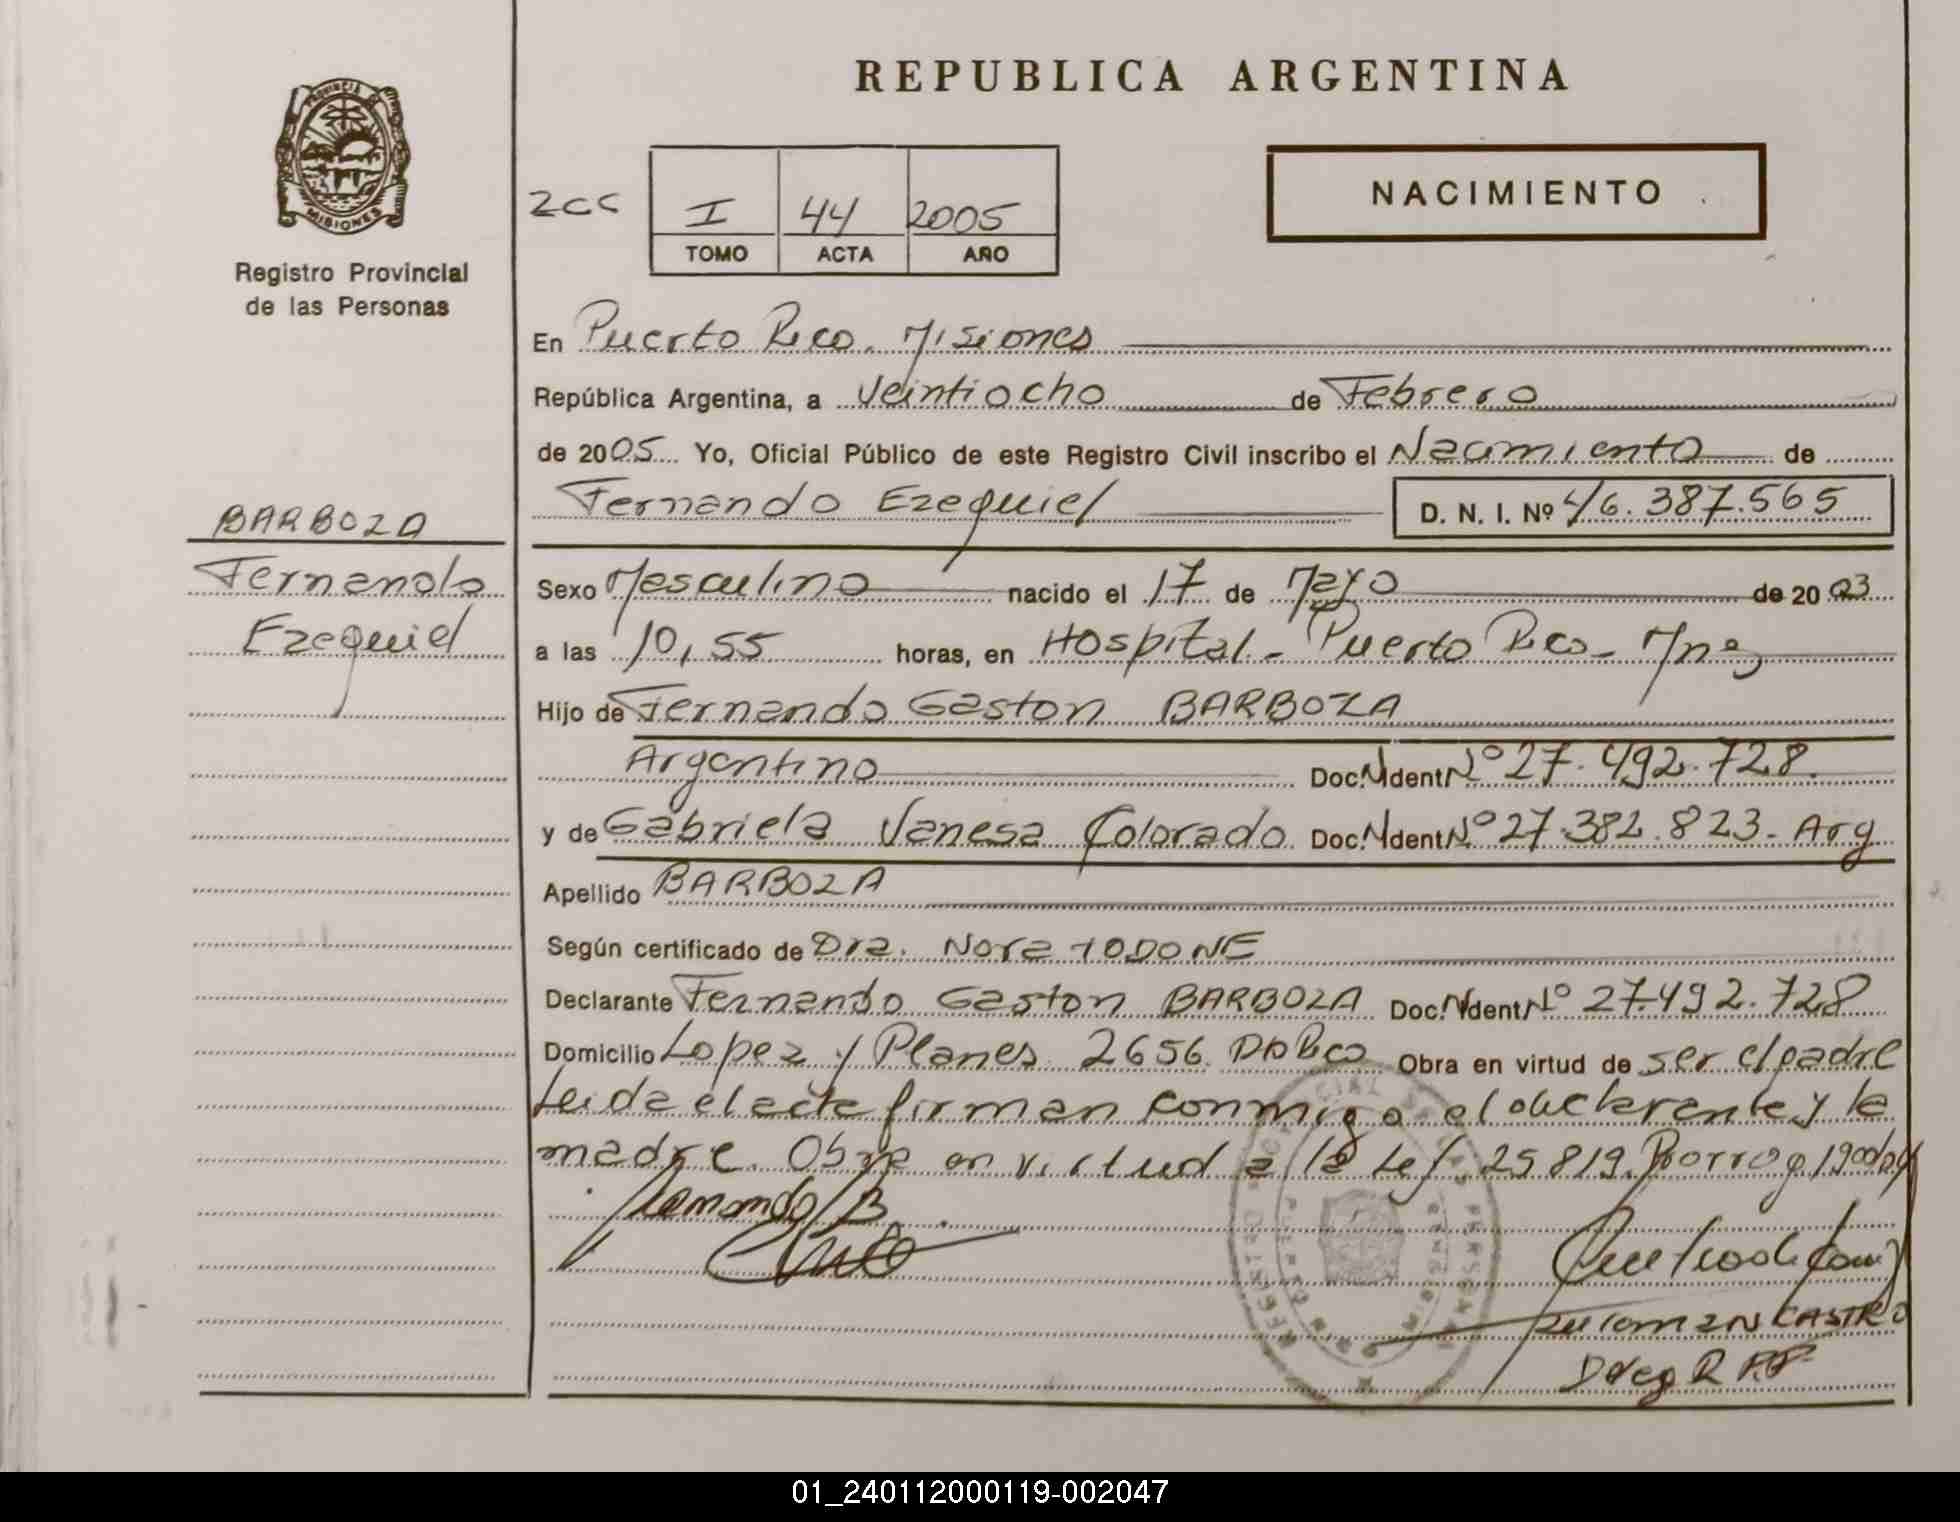 REPUBLICA ARGENTINA
PROVINCIA DE MISIONES
Registro Provincial
de las Personas
NACIMIENTO
I 44 2005
TOMO ACTA AÑO
BARBOZA
Fernando
Ezequiel
En Puerto Rico. Misiones
República Argentina, a Veintiocho de Febrero
de 2005 Yo, Oficial Público de este Registro Civil inscribo el Nacimiento de
Fernando Ezequiel D. N. I. Nº 46.387.565
Sexo Masculino nacido el 17 de Mayo de 2003
a las 10,55 horas, en Hospital - Puerto Rico - Mnes
Hijo de Fernando Gaston BARBOZA
Argentino Doc. Ident. Nº 27.492.728.
y de Gabriela Vanesa Colorado Doc. Ident. Nº 27.382.823 - Arg
Apellido BARBOZA
Según certificado de Dra. Nora TODONE
Declarante Fernando Gaston BARBOZA Doc. Ident. Nº 27.492.728
Domicilio Lopez y Planes 2656 Obra en virtud de ser el padre
Leida el acta firman conmigo el declarante y la
madre. Obra en virtud a la Ley 25819.
Fernando B
CASTRO
01_240112000119-002047